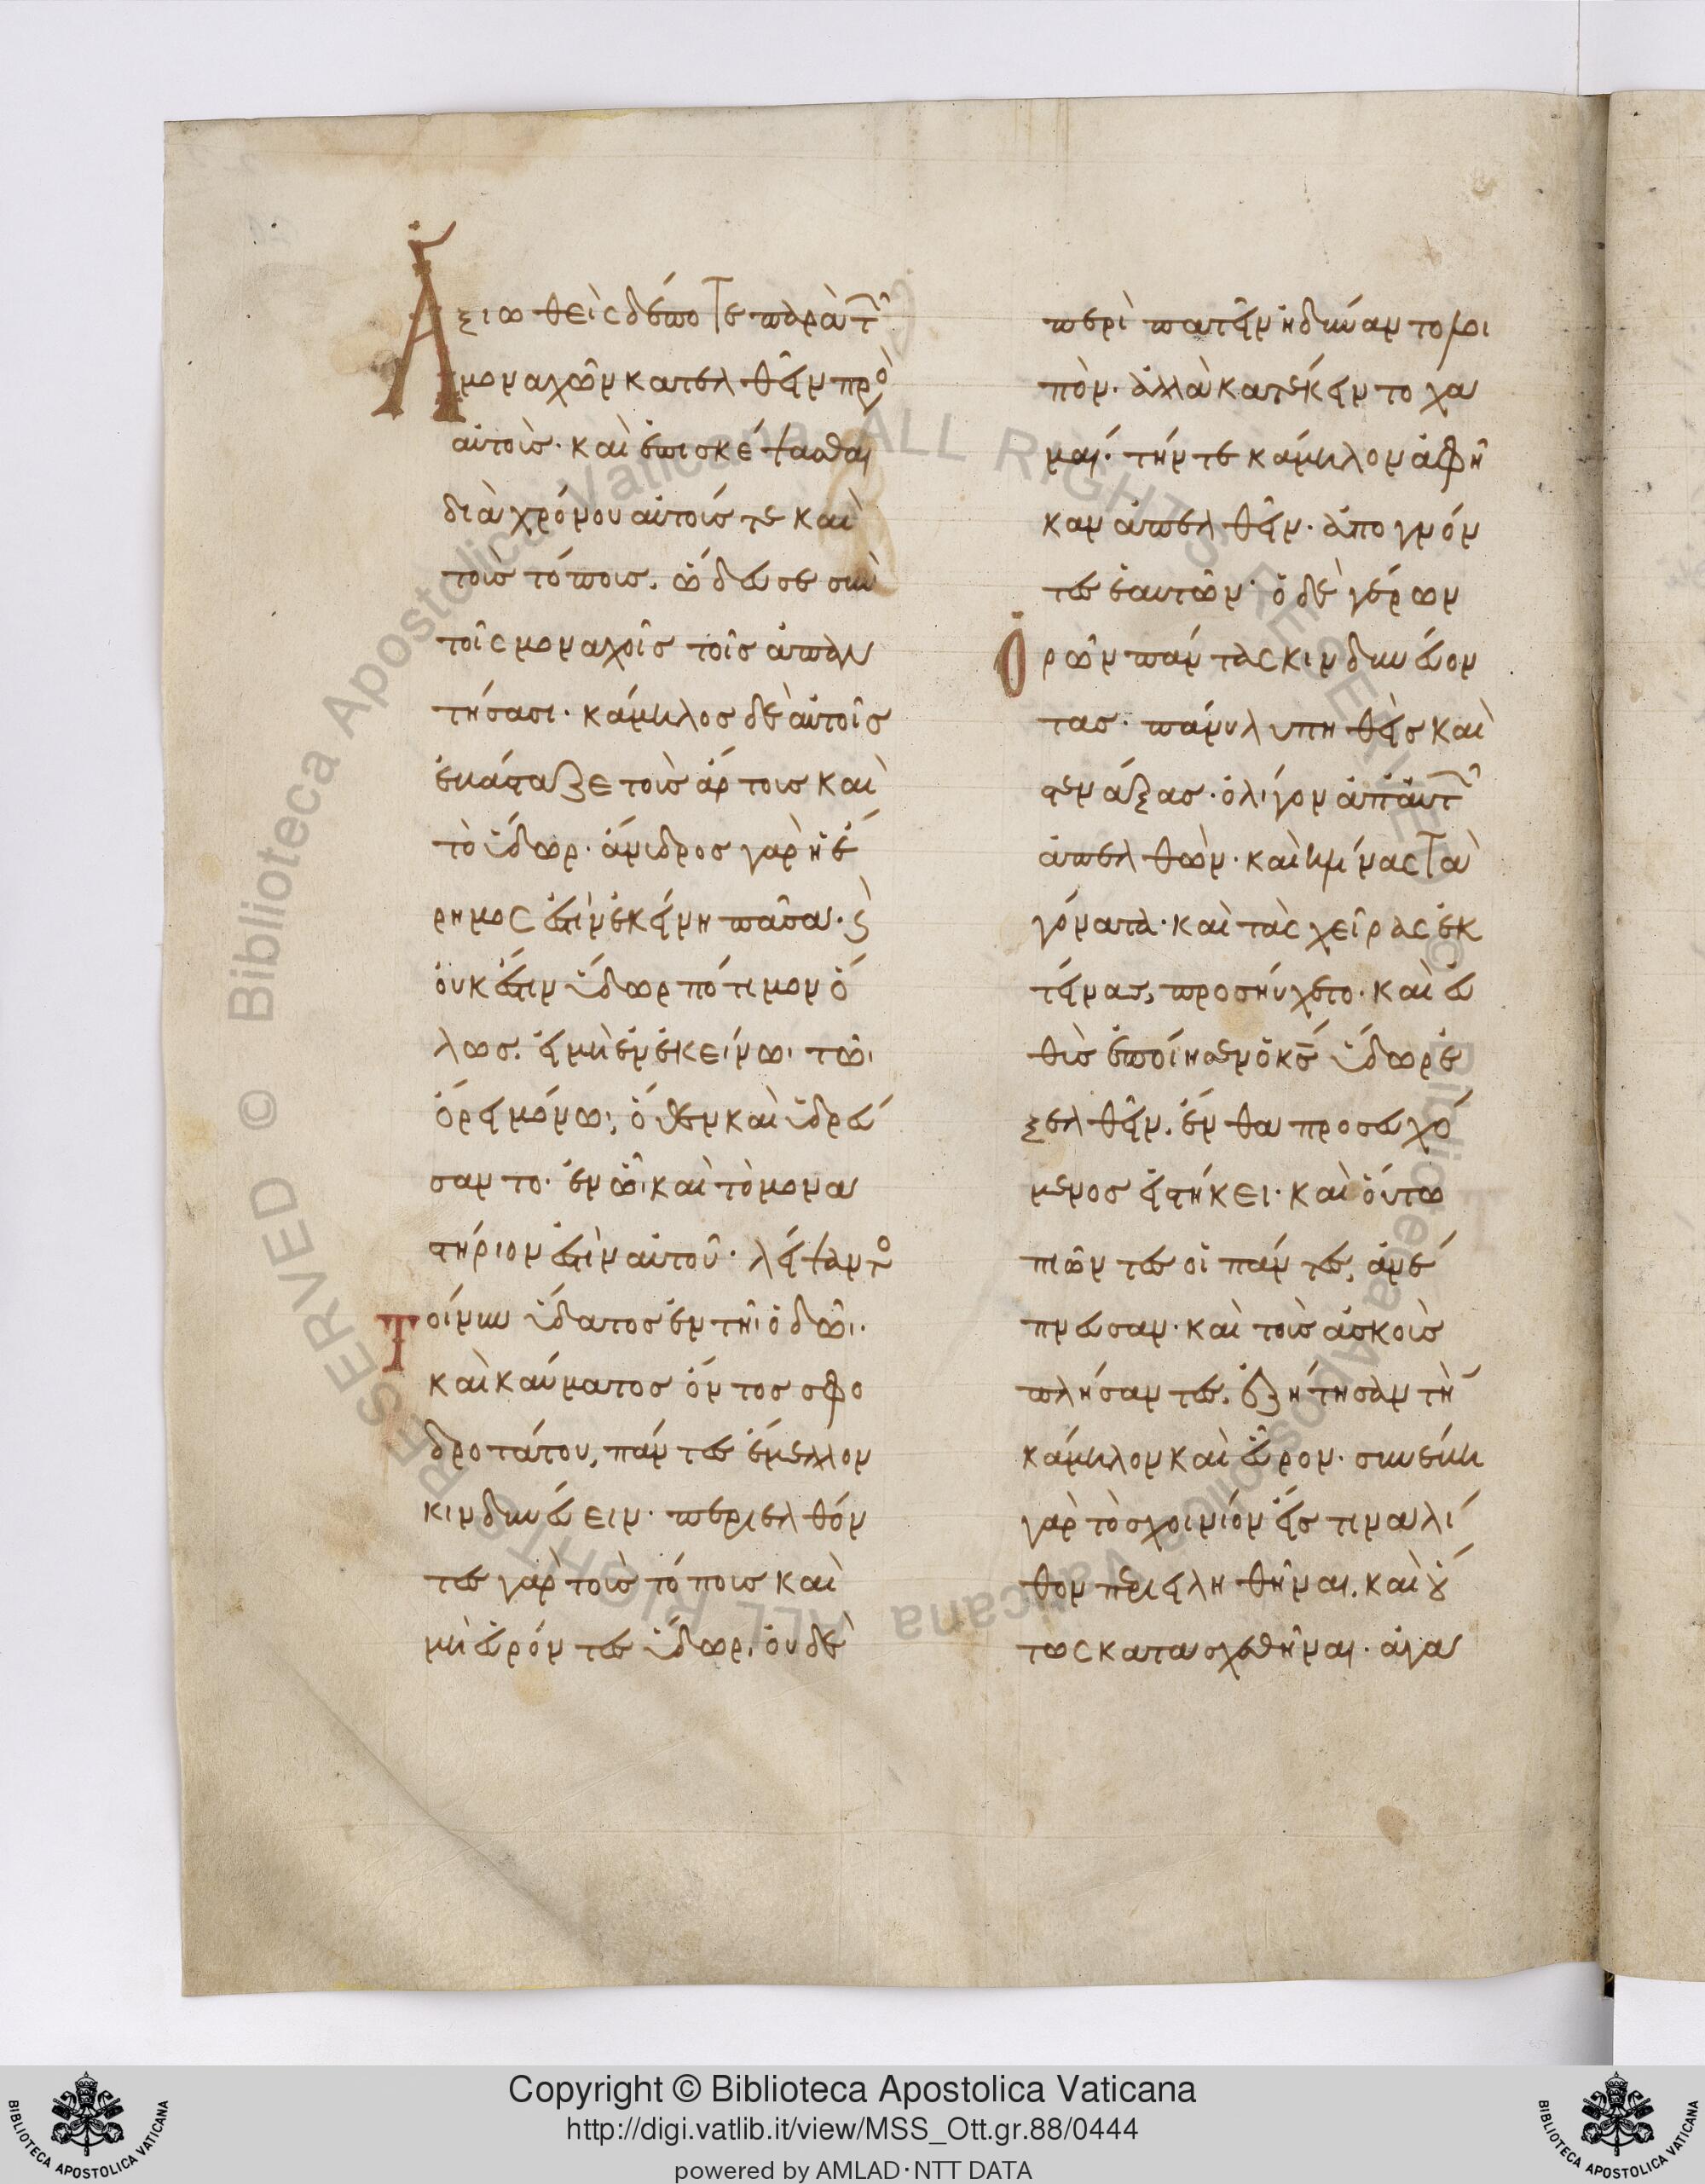 Ἀξιωθεὶς δέ ποτε παρὰ τ
μοναχῶν κατελθεῖν πρὸ
αὐτοὺς· καὶ ἐπισκέψασθαι
διὰ χρόνου αὐτούς τε καὶ
τοὺς τόπους. ὥδευσε σὺν
τοῖς μοναχοῖς τοῖς ἀπαν
τήσασι· κάμηλος δὲ αὐτοῖς
ἐβάσταζε τοὺς ἄρτους καὶ
τὸ ὕδωρ· ἄνυδρος γὰρ ἡ ἔ
ρημός ἐστιν ἐκείνη πᾶσα·
οὐκ ἔστιν ὕδωρ πότιμον ὅ
λως. εἰ μὴ ἐν ἐκείνωι τῶι
ὄρει μόνωι, ὅθεν καὶ ὑδρεύ
σαντο· ἐν ὧι καὶ τὸ μονα
στήριόν ἐστιν αὐτοῦ· λείψαντο
Τοίνυν ὕδατος ἐν τῆι ὁδῶι·
καὶ καύματος ὄντος σφο
δροτάτου, πάντες ἔμελλον
κινδυνεύειν· περιελθόν
τες γὰρ τοὺς τόπους καὶ
μὴ εὑρόντες ὕδωρ, οὐδὲ
περὶ πατεῖν ἠδύναντο λοι
πόν· ἀλλὰ κατέκειντο χα
μαί· τήν τε κάμηλον ἀφῆ
καν ἀπελθεῖν· ἀπογνόν
τες ἑαυτῶν· ὁ δὲ γέρων
Ὁρῶν πάντας κινδυνεύον
τας· πάνυ λυπηθεὶς καὶ
στενάξας· ὀλίγον ἀπ᾽ αὐτ
ἀπελθών· καὶ κλίνας τὰ
γόνατα· καὶ τὰς χεῖρας ἐκ
τείνας, προσηύχετο· καὶ εὐ
θὺς ἐποίησεν ὁ κς ὕδωρ ἐ
ξελθεῖν. ἔνθα προσευχό
μενος εἱστήκει· καὶ οὕτω
πιόντες οἱ πάντες, ἀνέ
πνευσαν· καὶ τοὺς ἀσκοὺς
πλήσαντες. ἐζήτησαν τὴ
κάμηλον καὶ εὗρον· συνέβη
γὰρ τὸ σχοινίον εἴς τινα λί
θον περιειληθῆναι. καὶ οὕ
τως κατασχεθῆναι· ἀγα
Copyright © Biblioteca Apostolica Vaticana
http://digi.vatlib.it/view/MSS_Ott.gr.88/0444
powered by AMLAD·NTT DATA
BIBLIOTECA APOSTOLICA VATICANA
BIBLIOTECA APOSTOLICA VATICANA
© Biblioteca Apostolica Vaticana ALL RIGHTS RESERVED
© Biblioteca Apostolica Vaticana ALL RIGHTS RESERVED